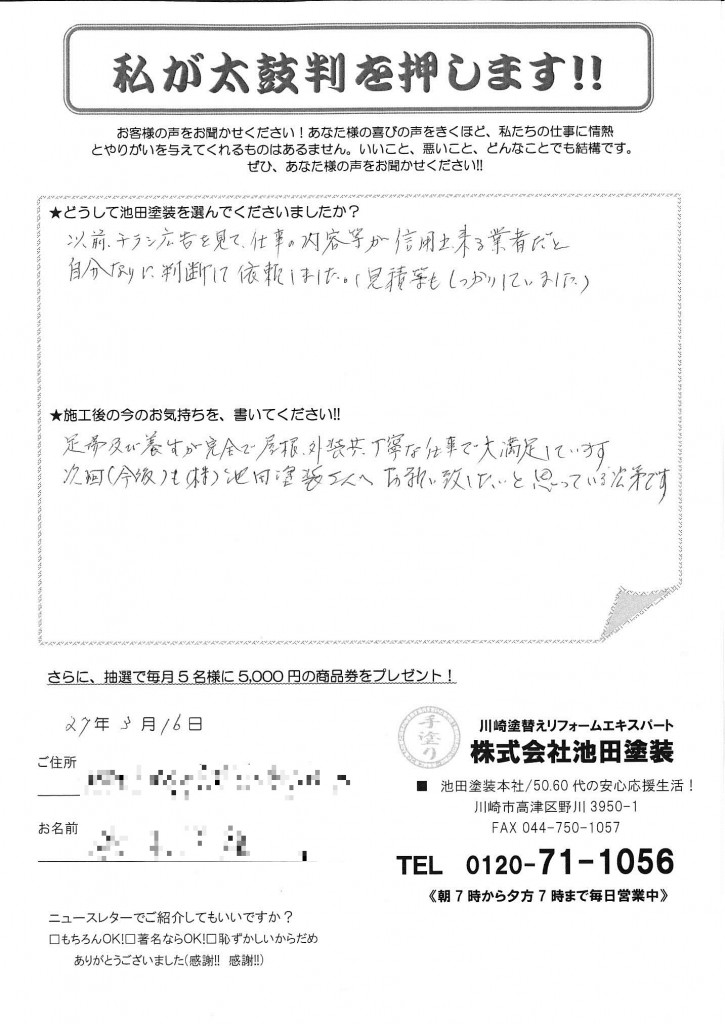 私が太鼓判を押します!!
お客様の声をお聞かせください！あなた様の喜びの声をきくほど、私たちの仕事に情熱
とやりがいを与えてくれるものはあるません。いいこと、悪いこと、どんなことでも結構です。
ぜひ、あなた様の声をお聞かせください!!
★どうして池田塗装を選んでくださいましたか？
以前、チラシ広告を見て、仕事の内容等が信用出来る業者だと
自分なりに判断して依頼しました。(見積等もしっかりしていました)
★施工後の今のお気持ちを、書いてください!!
足場及び養生が完全で屋根、外装共、丁寧な仕事で大満足しています
次回(今後)も(株)池田塗装さんへお願い致したいと思っている次第です
さらに、抽選で毎月５名様に5,000円の商品券をプレゼント！
27年3月16日
手塗り
川崎塗替えリフォームエキスパート
株式会社池田塗装
ご住所
■ 池田塗装本社/50.60代の安心応援生活！
川崎市高津区野川3950-1
お名前
FAX 044-750-1057
TEL 0120-71-1056
《朝7時から夕方7時まで毎日営業中》
ニュースレターでご紹介してもいいですか？
□もちろんOK!□著名ならOK!□恥ずかしいからだめ
ありがとうございました(感謝!! 感謝!!)